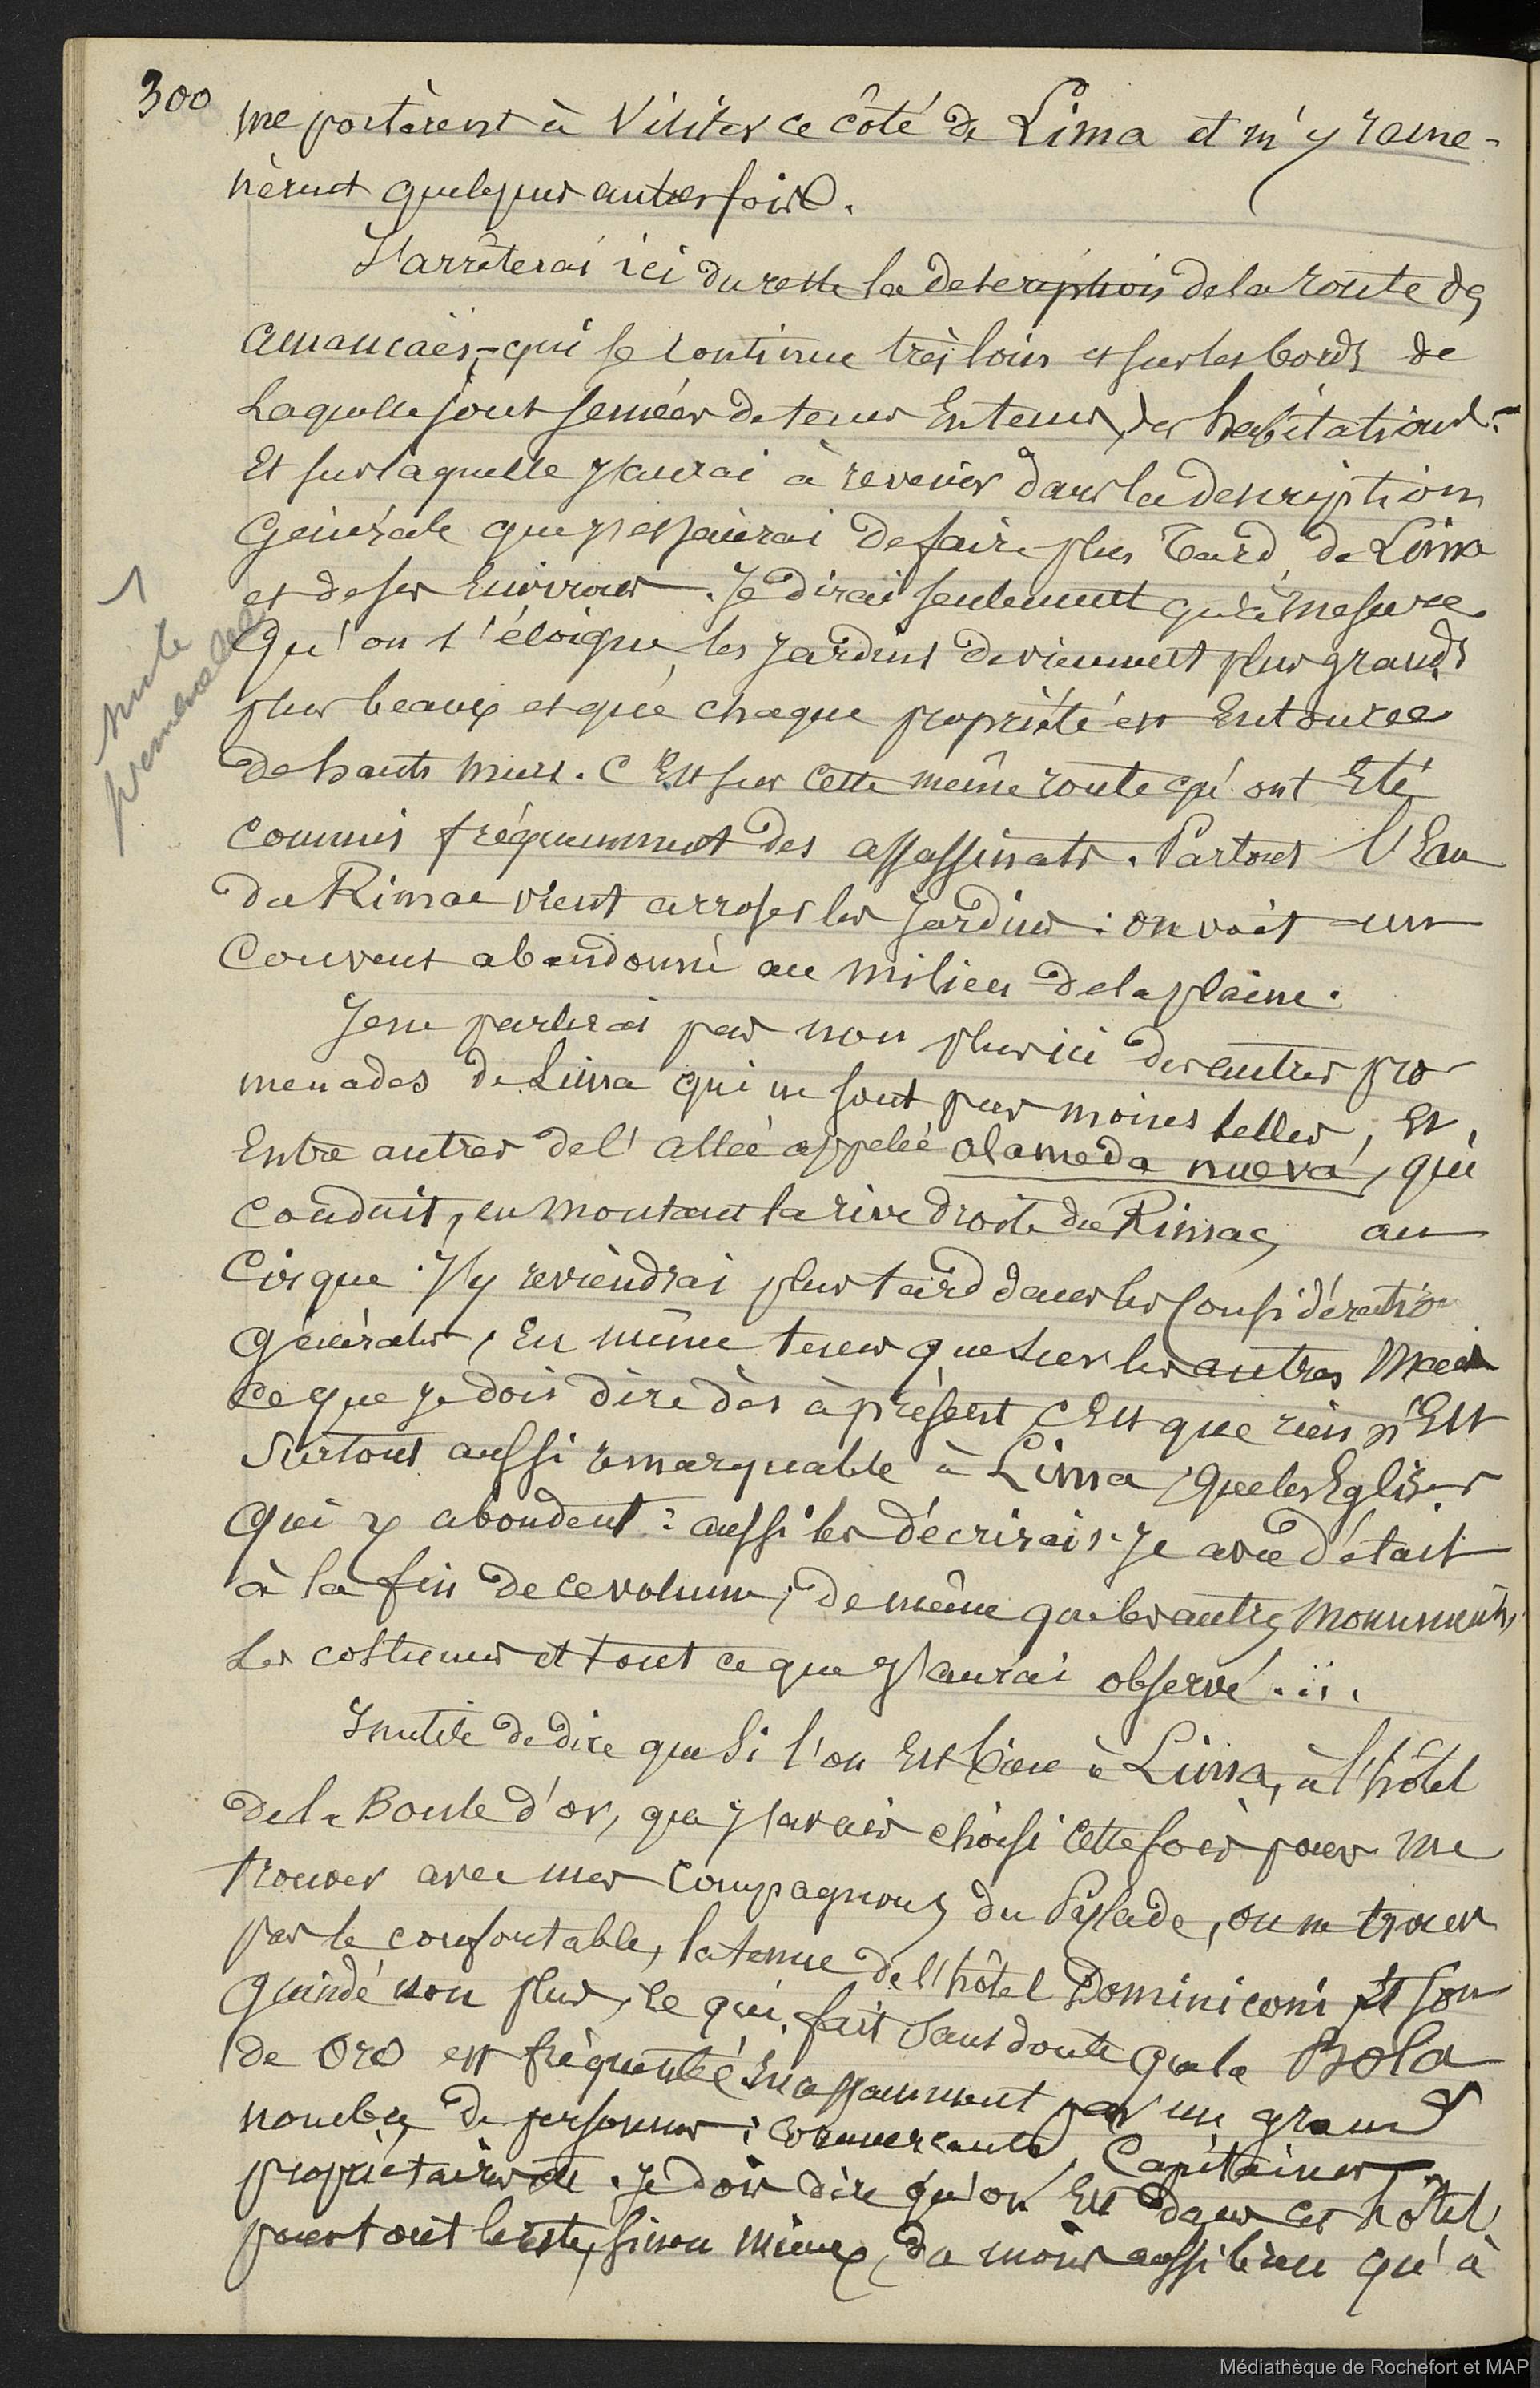 300
me portèrent à visiter ce côté de Lima et m'y rame-
nèrent quelques autres fois.
J'arrêterai ici du reste la description de la route des
amancaës, qui se continue très loin et sur les bords de
laquelle sont semées de tems en tems des habitations.
Et sur laquelle j'aurai à revenir dans la description
Générale que j'essaierai de faire plus tard de Lima
et de ses Environs. Je dirai seulement qu'à mesure
Qu'on s'éloigne, les jardins deviennent plus grands
plus beaux et que chaque propriété est Entourée
de hauts murs. C'Est sur cette même route qu'ont Eté
commis fréquemment des assassinats. Partout l'Eau
du Rimac vient arroser les jardins : on voit un
Couvent abandonné au milieu de la plaine.
suite
promenades
Je ne parlerai pas non plus ici des autres pro-
menades de Lima qui ne sont pas moins belles, Et,
Entre autres de l'allée appelée alameda nueva, qui
conduit, en montant la rive droite du Rimac, au
Cirque. J'y reviendrai plus tard dans les Considération
Générales, En même tems que sur les autres Mais
ce que je dois dire dès à présent, c'Est que rien n'Est
surtout aussi remarquable à Lima, que les Eglises
Qui y abondent : aussi les décrirais-je avec détail
à la fin de ce volume, de même que les autres monuments,
Les costumes et tout ce que j'aurai observé...
Inutile de dire que si l'on Est bien à Lima, à l'hôtel
de la Boule d'or, que j'avais choisi cette fois pour me
trouver avec mes compagnons du Pylade, on ne trouve
pas le confortable, la tenue de l'hôtel Dominiconi et son
guindé non plus, ce qui fait sans doute que la Bola
de Oro est fréquenté incessamment par un grand
nombre de personnes : commerçants, Capitaines,
propriétaires etc. Je dois dire qu'on Est dans cet hôtel,
pour tout le reste, sinon mieux, du moins aussi bien qu'à
Médiathèque de Rochefort et MAP